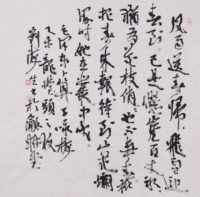 风雨送春归飞雪迎
春到已是悬崖百丈冰
犹有花枝俏俏也不争春
只把春来报待到山花烂
漫时她在丛中笑
毛泽东卜算子咏梅
乙未龙抬头之